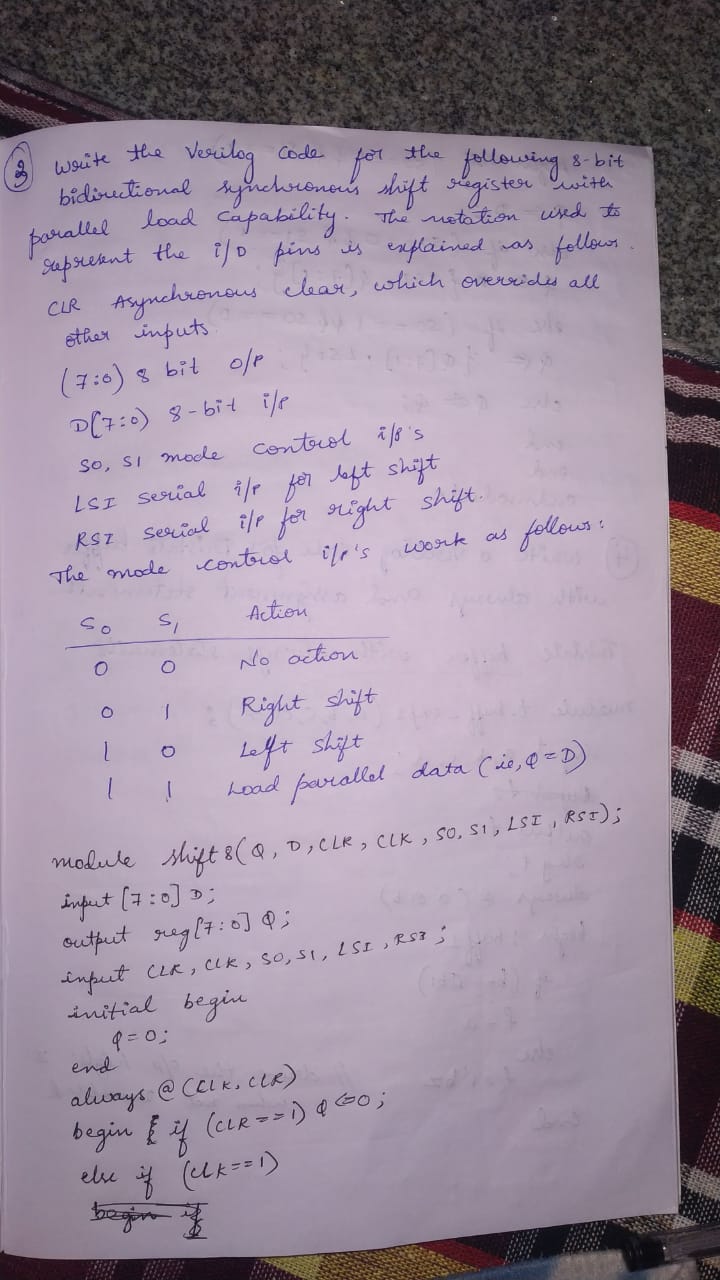 3 Write the Verilog Code for the following 8-bit
bidirectional synchronous shift register with
parallel load capability. The notation used to
represent the i/o pins is explained as follows.
CLR Asynchronous clear, which overrides all
other inputs.
(7:0) 8 bit o/p
D(7:0) 8-bit i/p
S0, S1 mode control i/p's
LSI serial i/p for left shift
RSI serial i/p for right shift.
The mode control i/p's work as follows:
S0 S1 Action
0 0 No action
0 1 Right shift
1 0 Left shift
1 1 Load parallel data (ie, Q=D)
module shift8(Q, D, CLR, CLK, S0, S1, LSI, RSI);
input [7:0] D;
output reg[7:0] Q;
input CLR, CLK, S0, S1, LSI, RSI;
initial begin
Q=0;
end
always @ (CLK, CLR)
begin if (CLR==1) Q<=0;
else if (CLK==1)
begin if